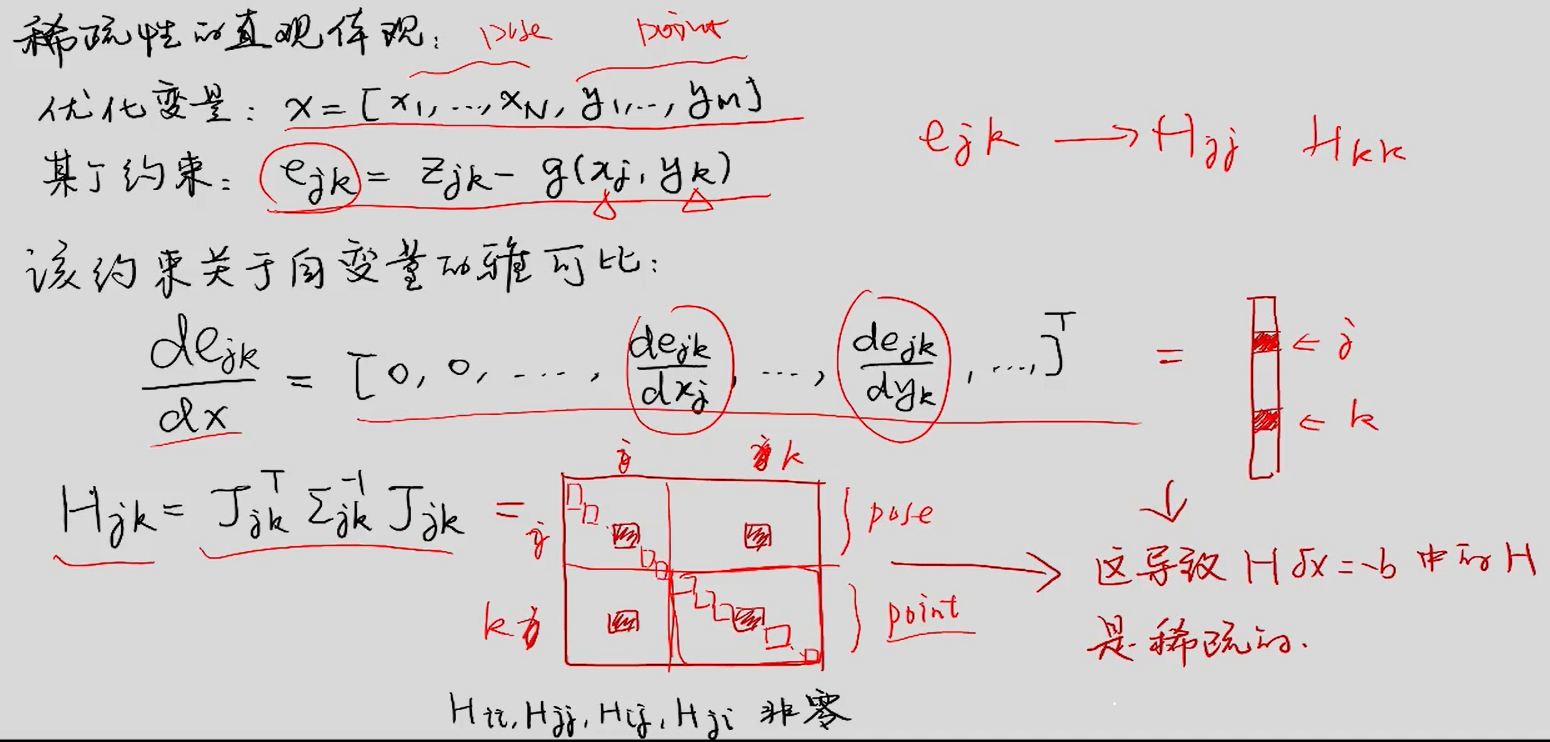 稀疏性的直观体现： pose point
优化变量： x = [x₁, ..., x_N, y₁, ..., y_M]
某个约束： e_jk = z_jk - g(x_j, y_k)
e_jk → H_jj H_kk
该约束关于自变量的雅可比：
de_jk/dx = [0, 0, ..., de_jk/dx_j, ..., de_jk/dy_k, ..., ]^T =
← j
← k
H_jk = J_jk^T Σ_jk^-1 J_jk =
j k
j
k
} pose
} point
这导致 H δx = -b 中的 H
是稀疏的.
H_ii, H_jj, H_ij, H_ji 非零